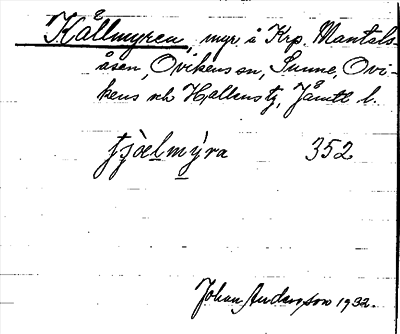 Kållmyren, myr å Krp. Mantals-
åsen, Ovikens sn, Sunne, Ovi-
kens och Hallens tg, Jämtl l.
fjòelmýra 352
Johan Andersson 1932.